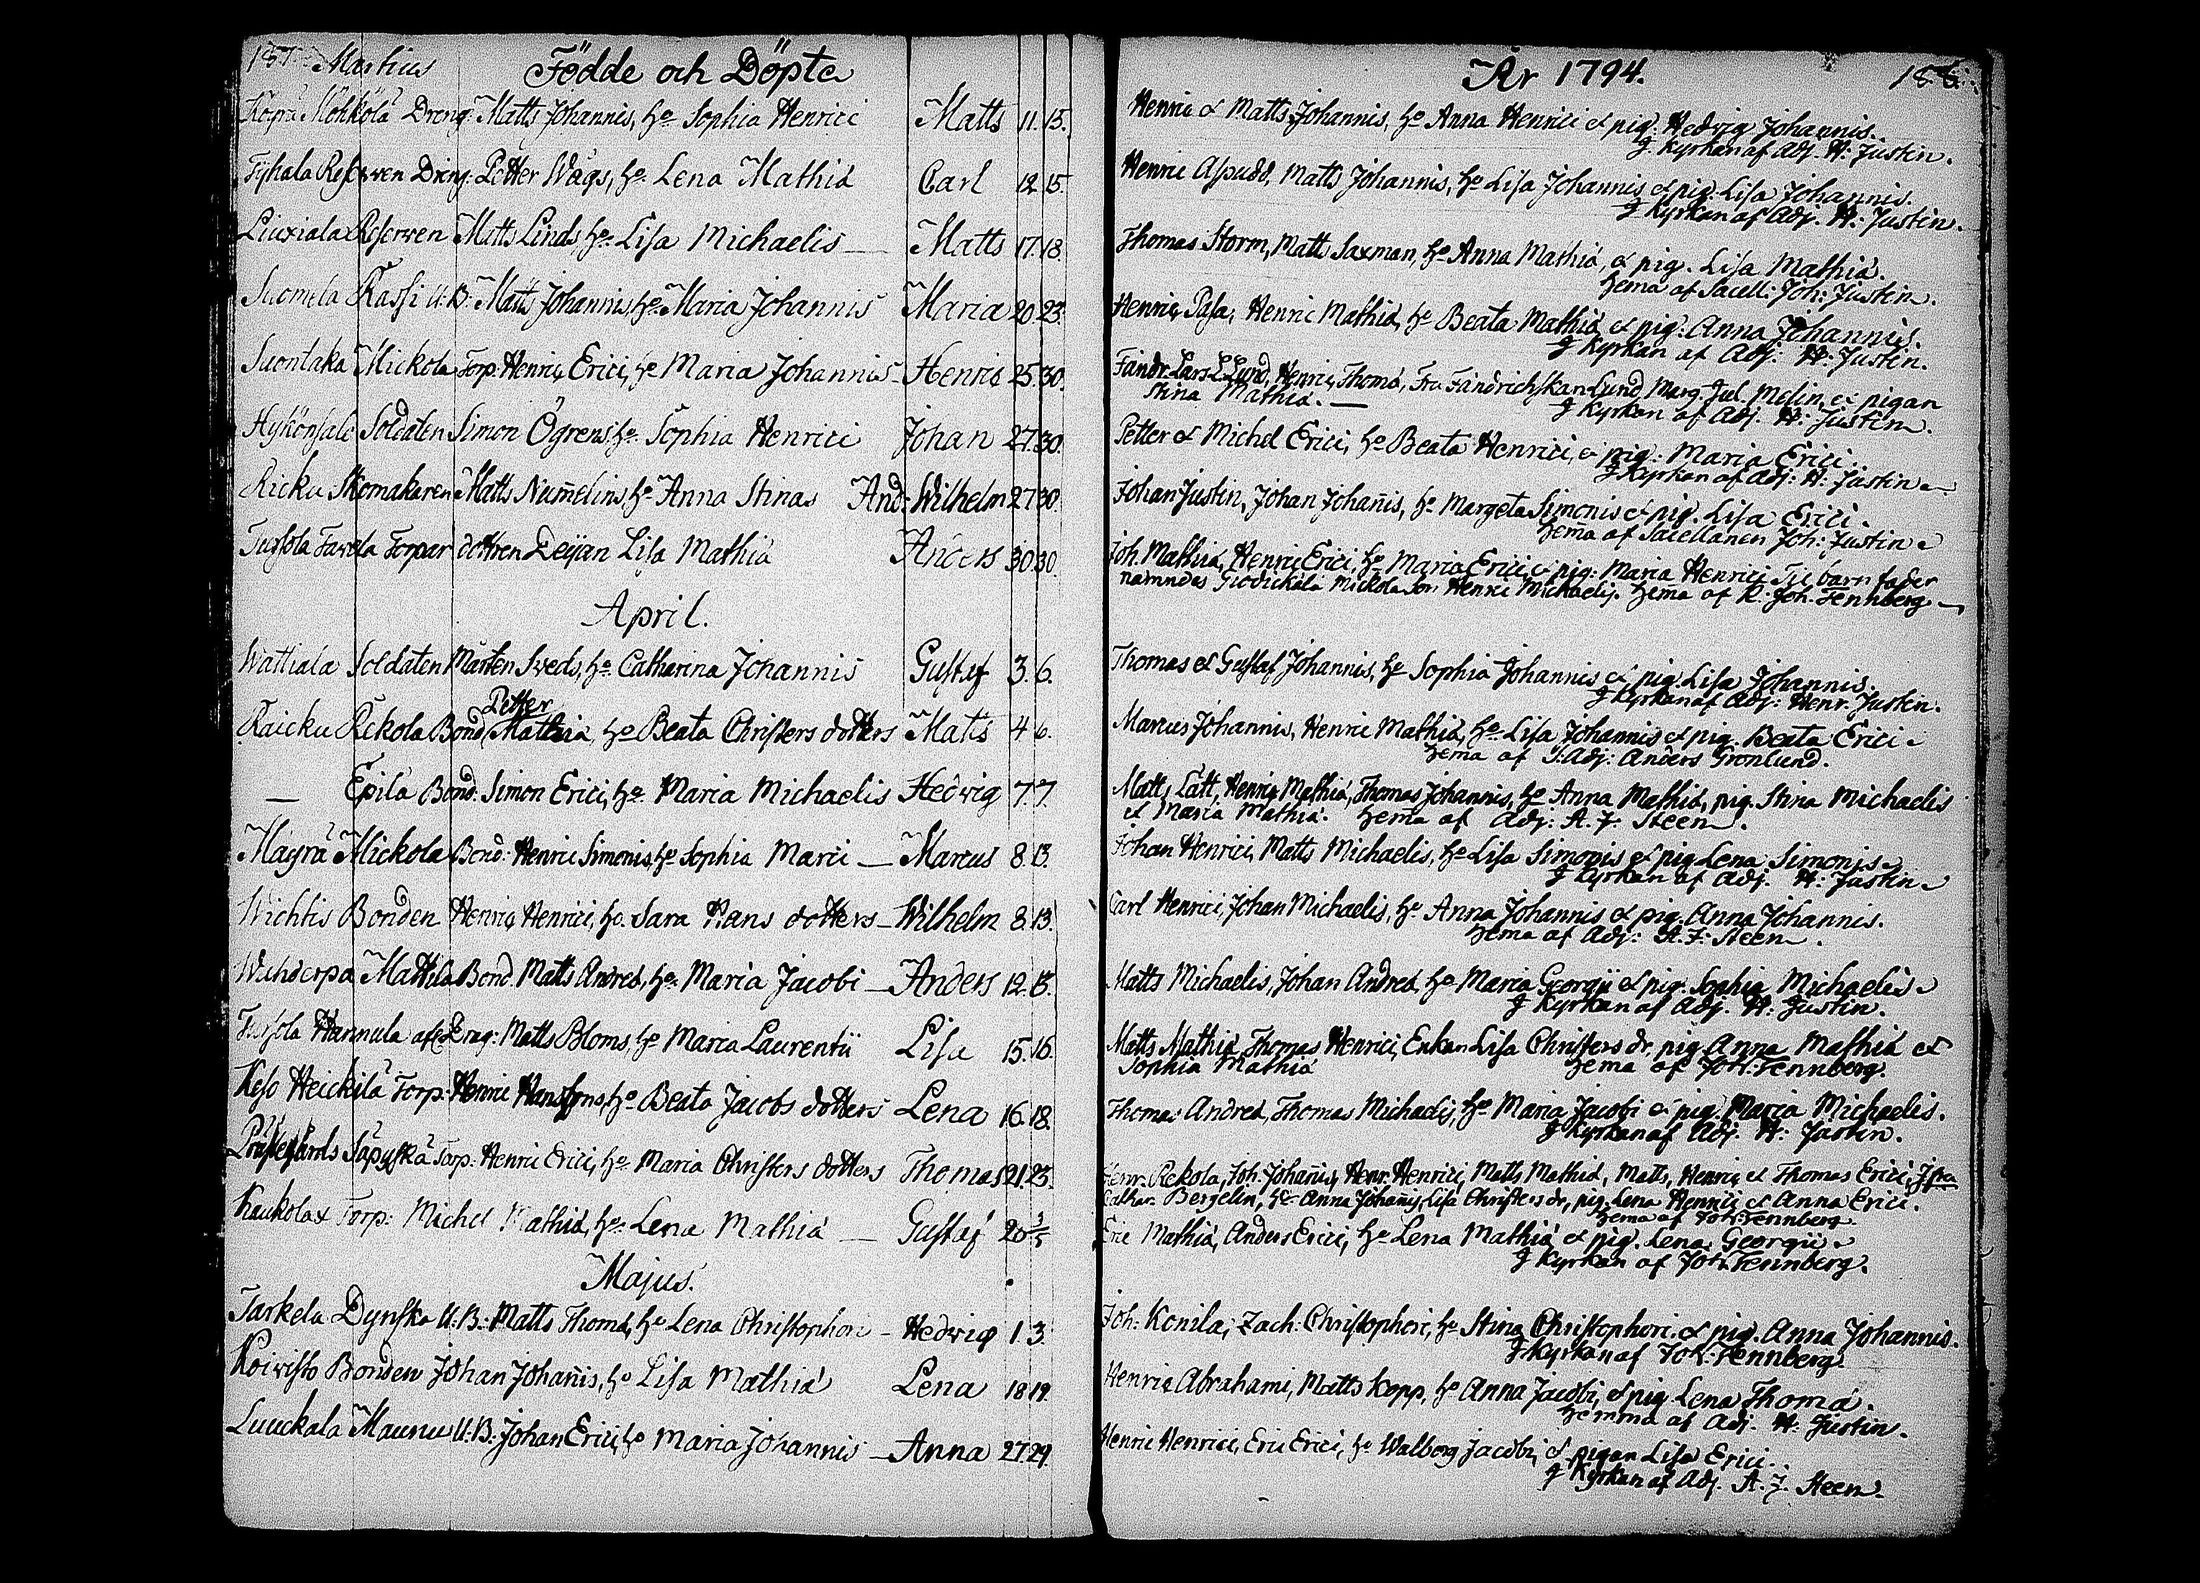 187. Martius Födde och Döpte
Möhkölä Dreng: Matts Johannis, h:o Sophia Henrici Matts 11. 15.
Reserven Dreng: Petter Wågs, h:o Lena Mathiæ Carl 12. 15.
Liuxiala Reserven Matts Linds, h:o Lisa Michaelis — Matts 17. 18.
Suomela Rassi U.B: Matts Johannis, h:o Maria Johannis Maria 20. 23.
Suontaka Mickola Torp: Henric Erici, h:o Maria Johannis — Henric 25. 30.
Soldaten Simon Ögrens, h:o Sophia Henrici Johan 27. 30.
Ricku Skomakaren Matts Num̄elins, h:o Anna Stinas And: Wilhelm 27. 30.
Tavela Torpar dottren Deijan Lisa Mathiæ Anders 30. 30.
April.
Wattiala Soldaten Mårten Sveds, h:o Catharina Johannis Gustaf 3. 6.
Petter
Raicku Rekola Bond: Mathiæ, h:o Beata Christers dotters Matts 4. 6.
— Epilä Bond: Simon Erici, h:o Maria Michaelis Hedvig 7. 7.
Mäyrä Mickola Bond: Henric Simonis, h:o Sophia Marci — Marcus 8. 13.
Wichtis Bonden Henric Henrici, h:o Sara Hans dotters — Wilhelm 8. 13.
Mattila Bond: Matts Andreæ, h:o Maria Jacobi — Anders 12. 13.
Hannula afsk: Drag: Matts Bloms, h:o Maria Laurentii Lisa 15. 16.
Keso Heickilä Torp: Henric h:o Beata Jacobs dotters Lena 16. 18.
Säpyskä Torp: Henric Erici, h:o Maria Christers dotters Thomas 21. 23.
Kaukola Torp: Michel Mathiæ, h:o Lena Mathiæ — Gustaf 20 1/5
Majus.
Tarkela Dynska U.B: Matts Thomæ, h:o Lena Christophori — Hedvig 1. 3.
Koivisto Bonden Johan Johan̄is, h:o Lisa Mathiæ Lena 18. 19.
Luuckala Maunu U.B: Johan Erici, h:o Maria Johannis — Anna 27. 29.
År 1794. 188.
Henric & Matts Johannis, h:o Anna Henrici & pig: Hedvig Johannis.
J Kyrkan af Adj. H: Justin.
Henric Aspudd, Matts Johannis, h:o Lisa Johannis & pig: Lisa Johannis.
J Kyrkan af Adj. H: Justin.
Thomas Storm, Matts Saxman, h:o Anna Mathiæ, & pig. Lisa Mathiæ.
hema af Sacell: Joh: Justin.
Henric Pasa, Henric Mathiæ, h:o Beata Mathiæ & pig: Anna Johannis.
J Kyrkan af Adj: H: Justin.
Fändr: Lars Lund, Henric Thomæ, Fru Fändrichskan Lund, Marg. Jul. Melin, & pigan
Stina Mathiæ. — J Kyrkan af Adj. H: Justin.
Petter & Michel Erici, h:o Beata Henrici, & pig: Maria Erici.
J Kyrkan af Adj: H: Justin
Johan Justin, Johan Johan̄is, h:o Margeta Simonis & pig. Lisa Erici.
hema af Sacellanen Joh: Justin
Joh. Mathiæ, Henric Erici, h:o Maria Erici, & pig: Maria Henrici. Til barn fader
namndes Mickola Son Henric Michaelis. hema af K: Joh. Tennberg —
Thomas & Gustaf Johannis, h:o Sophia Johannis & pig: Lisa Johannis.
J Kyrkan af Adj: Henr. Justin.
Marcus Johannis, Henric Mathiæ, h:o Lisa Johannis & pig. Beata Erici
hema af Adj: Anders Grönlund.
Matts Lätt, Henric Mathiæ, Thomas Johannis, h:o Anna Mathiæ, pig. Stina Michaelis
& Maria Mathiæ. hema af Adj: A. J. Steen.
Johan Henrici, Matts Michaelis, h:o Lisa Simonis & pig Lena Simonis
J Kyrkan af Adj. H: Justin
Carl Henrici, Johan Michaelis, h:o Anna Johannis & pig. Anna Johannis.
hema af Adj: A. J. Steen.
Matts Michaelis, Johan Andreæ, h:o Maria Georgii & pig. Sophia Michaelis
J Kyrkan af Adj. H: Justin.
Matts Mathiæ, Thomas Henrici, Enkan Lisa Christers dr, pig. Anna Mathiæ &
Sophia Mathiæ hema af Joh: Tennberg.
Thomas Andreæ, Thomas Michaelis, h:o Maria Jacobi & pig. Maria Michaelis.
J Kyrkan af Adj. H: Justin.
Henr: Rekola, Joh. Johan̄is, Henr. Henrici, Matts Mathiæ, Matts, Henric & Thomas Erici, Jfru
Cathar. Bergelin, h:o Anna Johan̄is, Lisa Christers dr, pig. Lena Henrici & Anna Erici.
hema af Joh: Tennberg
Eric Mathiæ, Anders Erici, h:o Lena Mathiæ & pig. Lena Georgii
J Kyrkan af Joh. Tennberg.
Joh: Konila, Zach: Christophori, h:o Stina Christophori & pig. Anna Johannis.
J Kyrkan af Joh: Tennberg.
Henric Abrahami, Matts Kopp, h:o Anna Jacobi, & pig Lena Thomæ.
hemma af Adj. H: Justin.
Henric Henrici, Eric Erici, h:o Walborg Jacobi, & pigan Lisa Erici.
J Kyrkan af Adj. A. J. Steen.